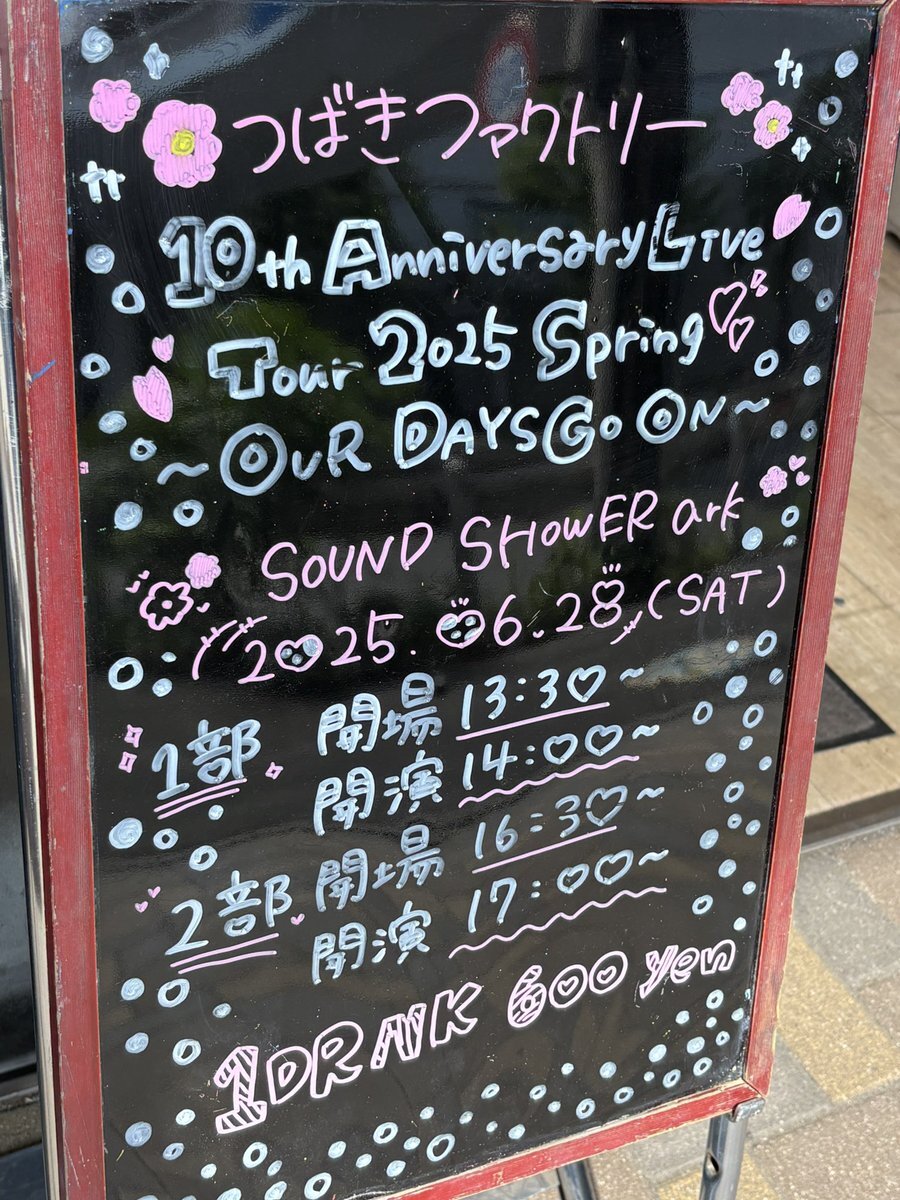 つばきファクトリー
10th Anniversary Live
Tour 2025 Spring
~OUR DAYS GO ON~
SOUND SHOWER ark
2025.06.28(SAT)
1部 開場 13:30~
開演 14:00~
2部 開場 16:30~
開演 17:00~
1DRINK 600 yen